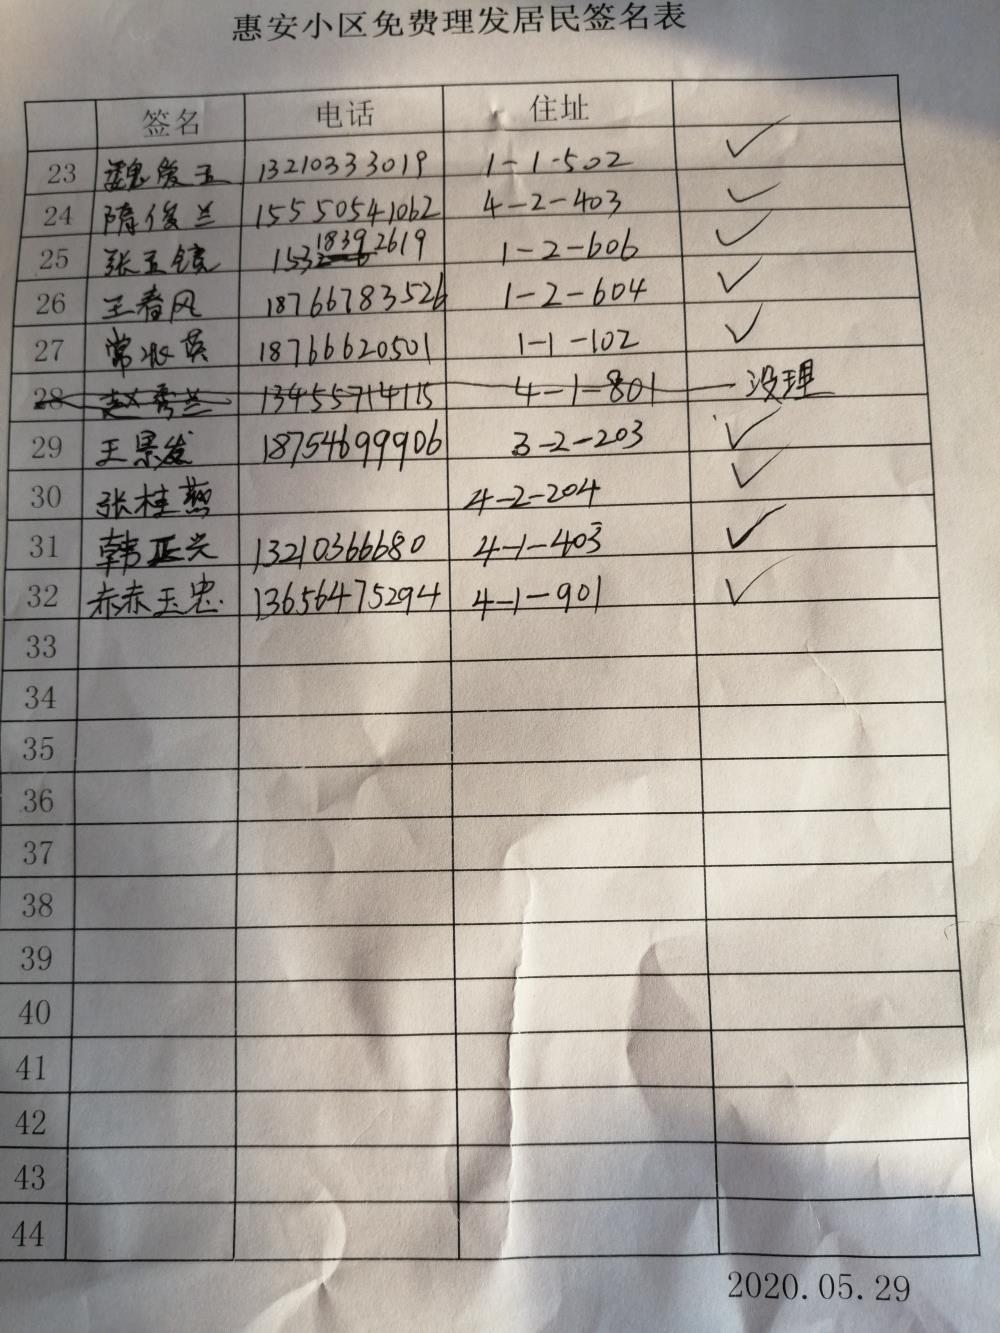 惠安小区免费理发居民签名表
签名 电话 住址
23 魏爱玉 13210333019 1-1-502 ✓
24 隋俊兰 15550541062 4-2-403 ✓
25 张玉镜 15318392619 1-2-606 ✓
26 王春风 18766783526 1-2-604 ✓
27 常兆英 18766620501 1-1-102 ✓
28 赵秀兰 13455714115 4-1-801 没理
29 王景发 18754699906 3-2-203 ✓
30 张桂燕 4-2-204 ✓
31 韩正兴 13210366680 4-1-403 ✓
32 玉忠 13656475294 4-1-901 ✓
33
34
35
36
37
38
39
40
41
42
43
44
2020.05.29